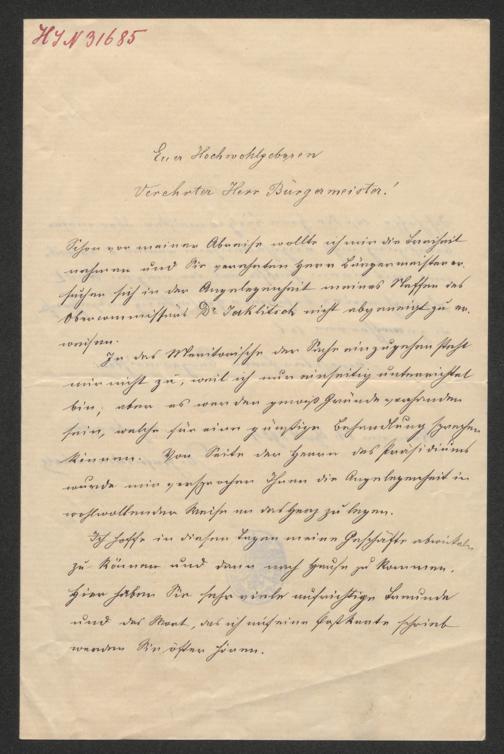 HIN 31685
Euer Hochwohlgeboren
Verehrter Herr Bürgermeister!
Schon vor meiner Abreise wollte ich mir die Freiheit
nehmen und Sie verehrten Herrn Bürgermeister er-
suchen sich in der Angelegenheit meines Neffen des
Obercommissärs Dr Jaklitsch nicht abgeneigt zu er-
weisen.
In das Meritorische der Sache einzugehen steht
mir nicht zu, weil ich nur einseitig unterrichtet
bin; aber es werden gewiß Gründe vorhanden
sein, welche für eine günstige Behandlung sprechen
können. Von Seite der Herrn des Präsidiums
wurde mir versprochen Ihnen die Angelegenheit in
wohlwollender Weise an das Herz zu legen.
Ich hoffe in diesen Tagen meine Geschäfte abwickeln
zu können und dann nach Hause zu kommen.
Hier haben Sie sehr viele aufrichtige Freunde
und das Wort, das ich auf eine Postkarte schrieb
werden Sie öfter hören.